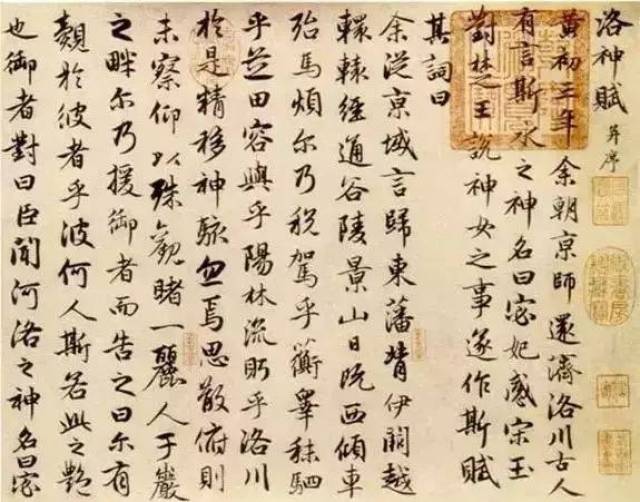 洛神賦 并序
黃初三年余朝京師還濟洛川古人
有言斯水之神名曰宓妃感宋玉
對楚王說神女之事遂作斯賦
其詞曰
余從京域言歸東藩背伊闕越
轘轅經通谷陵景山日既西傾車
殆馬煩尔乃税駕乎蘅皋秣駟
乎芝田容與乎陽林流眄乎洛川
於是精移神駭忽焉思散俯則
未察仰以殊觀睹一麗人于巖
之畔尔乃援御者而告之曰尔有
覿於彼者乎彼何人斯若此之艷
也御者對曰臣聞河洛之神名曰宓